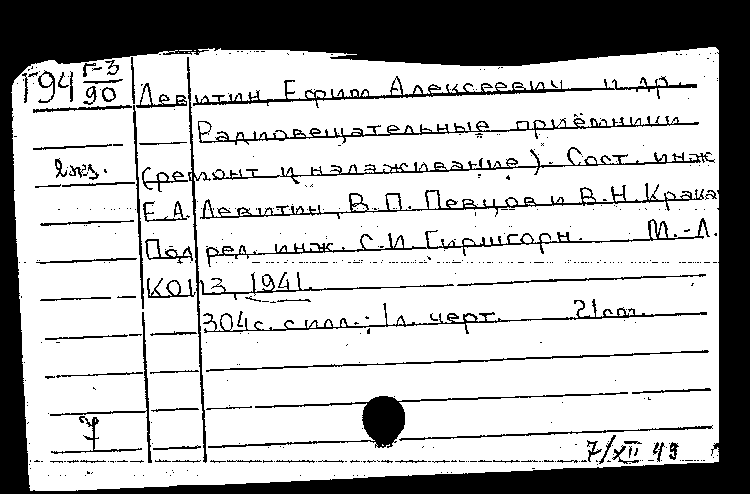 Г94 Г-3
90
Левитин, Ефим Алексеевич и др.
Радиовещательные приёмники
2 экз. (ремонт и налаживание). Сост. инж
Е.А. Левитин, В.П. Певцов и В.Н. Крака
Под ред. инж. С.И. Гиршгорн. М.-Л.
КОИЗ, 1941.
304с. с илл.; 1 л. черт. 21 см.
7/XII 49